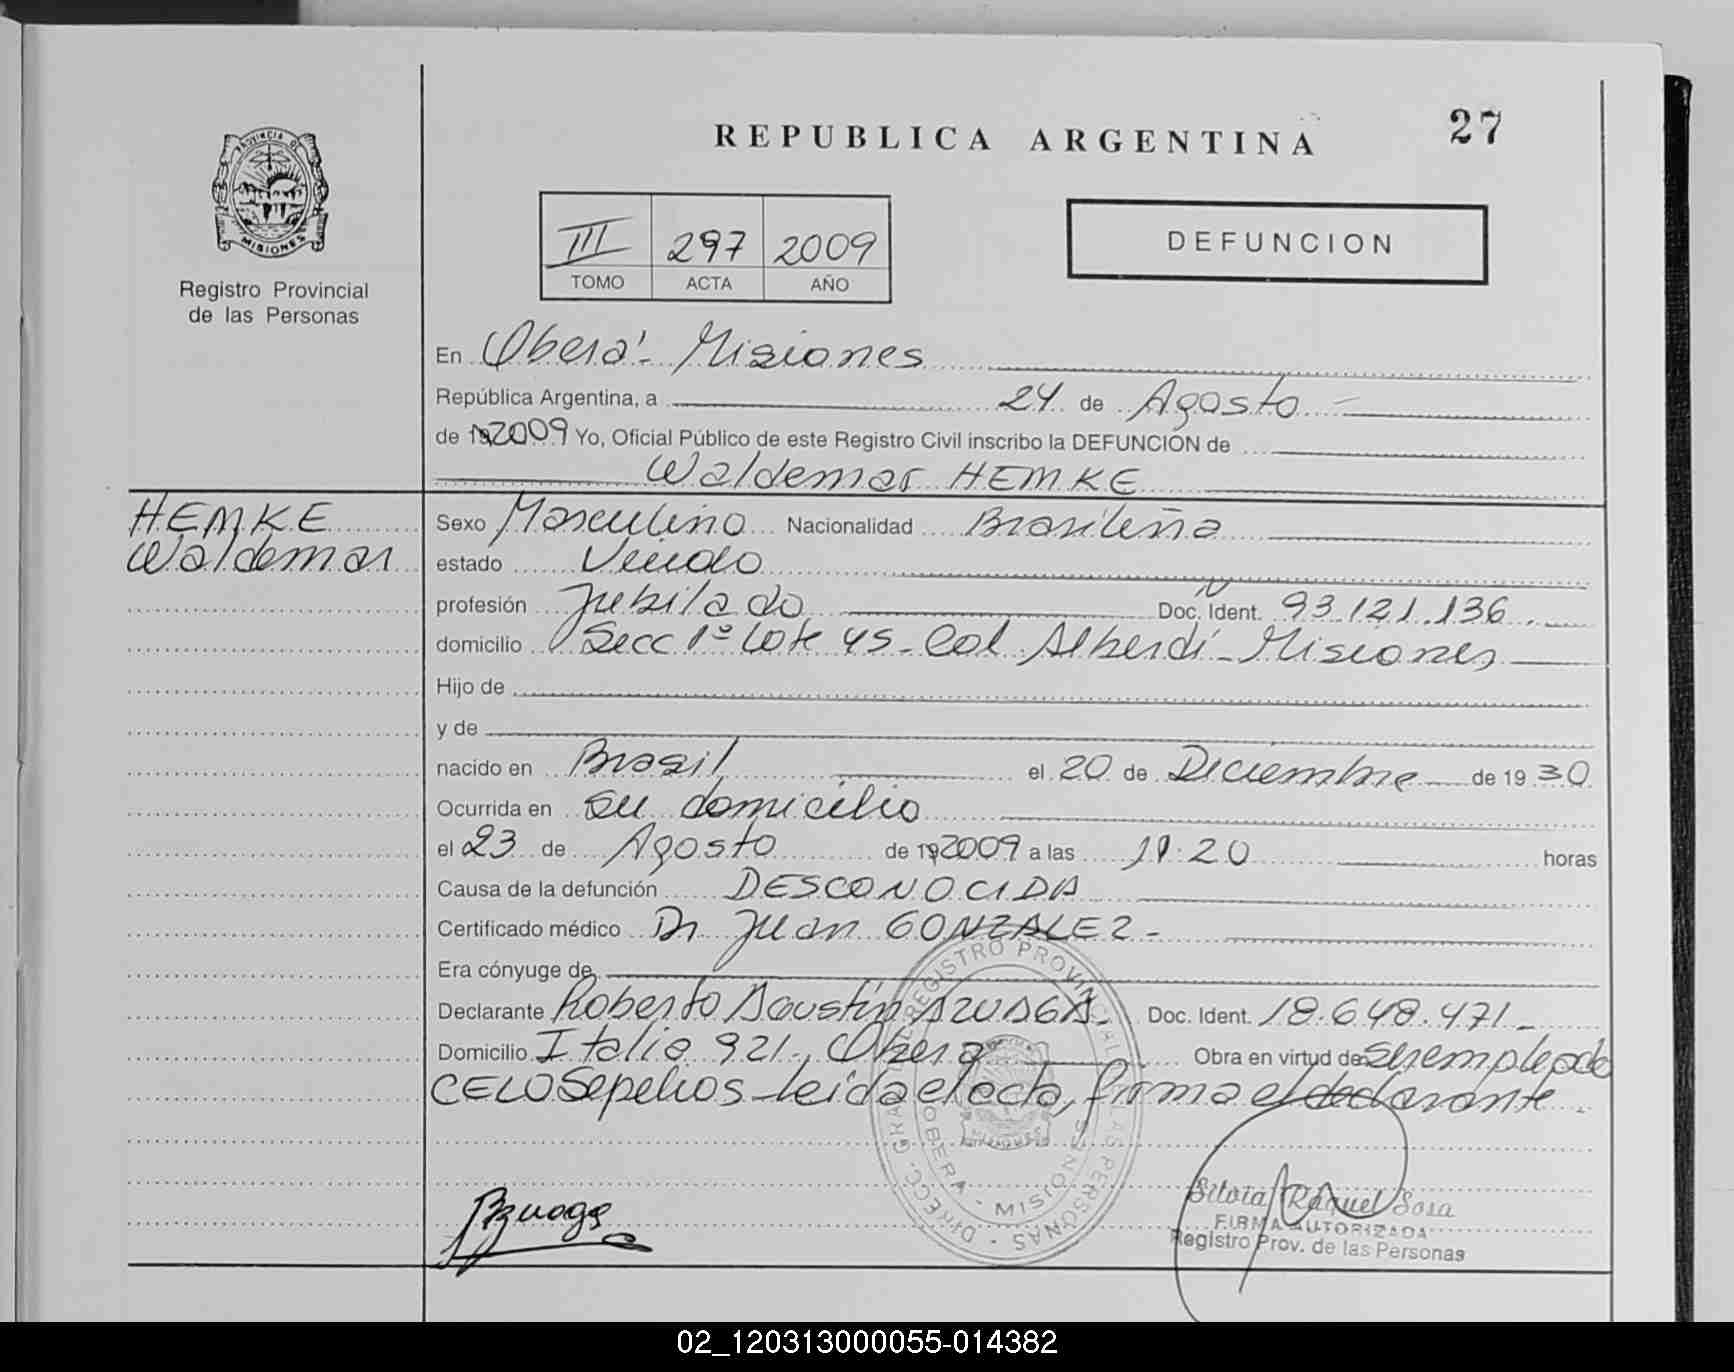 27
REPUBLICA ARGENTINA
PROVINCIA DE
MISIONES
Registro Provincial
de las Personas
III 297 2009
TOMO ACTA AÑO
DEFUNCION
En Oberá - Misiones
República Argentina, a 24 de Agosto -
de 19 2009 Yo, Oficial Público de este Registro Civil inscribo la DEFUNCION de
Waldemar HEMKE
HEMKE
Waldemar
Sexo Masculino Nacionalidad Brasileña
estado Viudo
profesión Jubilado Doc. Ident. 93.121.136.
domicilio Secc 1º Lote 45 - Col. Alberdi - Misiones
Hijo de
y de
nacido en Brasil el 20 de Diciembre de 19 30
Ocurrida en su domicilio
el 23 de Agosto de 19 2009 a las 11.20 horas
Causa de la defunción DESCONOCIDA
Certificado médico Dr Juan GONZALEZ -
Era cónyuge de
Declarante Roberto Agustín AZUAGA. Doc. Ident. 18.648.471 -
Domicilio Italia 921., Obera Obra en virtud de ser empleado
CELO Sepelios - Leida el acta, firma el declarante.
REGISTRO PROVINCIAL DE LAS PERSONAS - DIRECC. GRAL.
OBERA - MISIONES
Silvia Raquel Sosa
FIRMA AUTORIZADA
Registro Prov. de las Personas
02_120313000055-014382